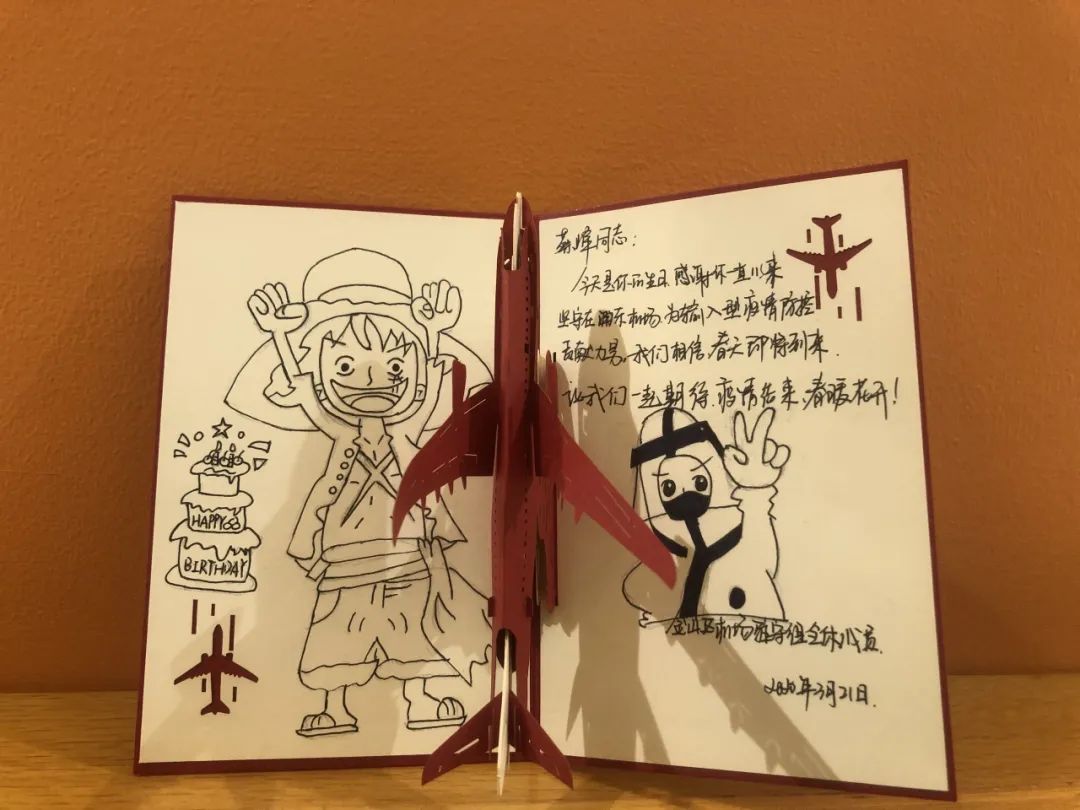 HAPPY
BIRTHDAY
同志：
今天是你的生日,感谢你一直以来
坚守在浦东机场,为输入型疫情防控
贡献力量,我们相信,春天即将到来.
让我们一起期待,疫情结束,春暖花开!
金山区机场驻守组全体成员.
2020年3月21日.